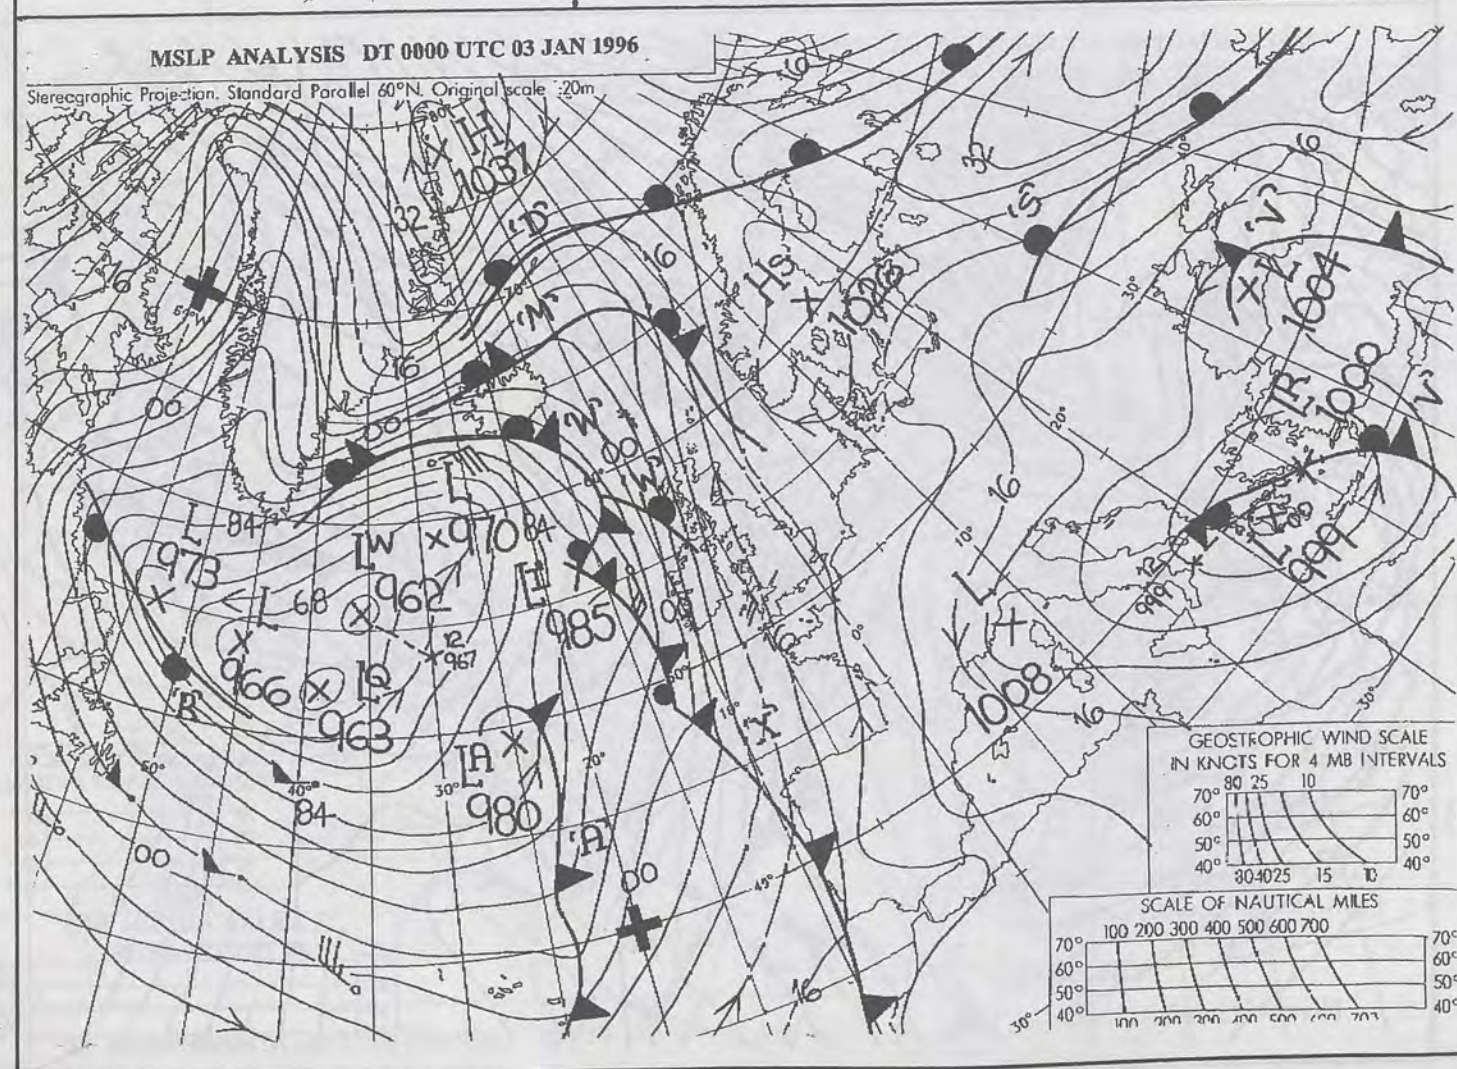 MSLP ANALYSIS DT 0000 UTC 03 JAN 1996
Stereographic Projection. Standard Parallel 60°N. Original scale 1:20m
H
1037
32
'D'
16
'M'
16
00
00
16
HS
1026
32
'S'
16
'V'
L
1004
LR
1000
'V'
L
999
12
999
16
L
1008
16
L
84
973
L
970
84
LW
962
'W'
00
'W'
L
68
966
LQ
963
12
967
LI
985
00
16
'R'
LA
980
'A'
'X'
84
00
00
16
50°
40°
30°
20°
10°
0°
10°
20°
30°
40°
GEOSTROPHIC WIND SCALE
IN KNOTS FOR 4 MB INTERVALS
80 25 10
70° 70°
60° 60°
50° 50°
40° 40°
80 40 25 15 10
SCALE OF NAUTICAL MILES
100 200 300 400 500 600 700
70° 70°
60° 60°
50° 50°
40° 40°
100 200 300 400 500 600 700
30°